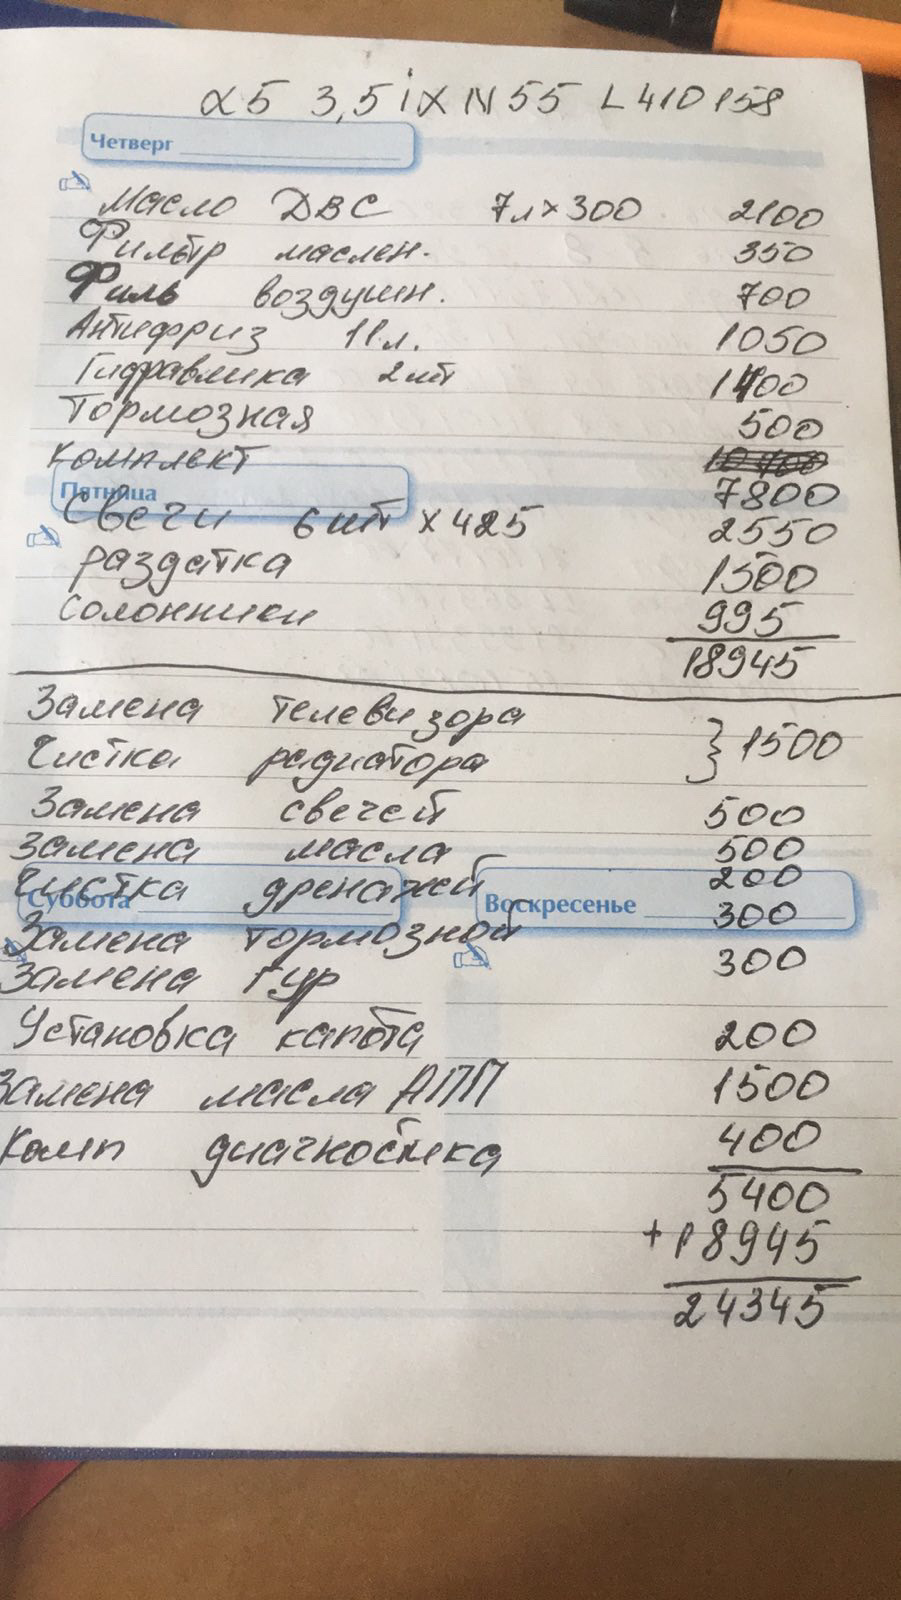 х5 3,5iX N55 L410158
Четверг
Масло ДВС 7л×300 2100
Фильтр маслен. 350
Филь воздушн. 700
Антифриз 11л. 1050
Гидравлика 2шт 1400
Тормозная 500
комплект 10400
7800
Пятница
Свечи 6шт ×425 2550
раздатка 1500
Солонники 995
18945
Замена телевизора
Чистка радиатора } 1500
Замена свечей 500
Замена масла 500
Чистка дренажей 200
Суббота Воскресенье
Замена тормозной 300
Замена гур 300
Установка капота 200
Замена масла АПП 1500
Комп диагностика 400
5400
+18945
24345